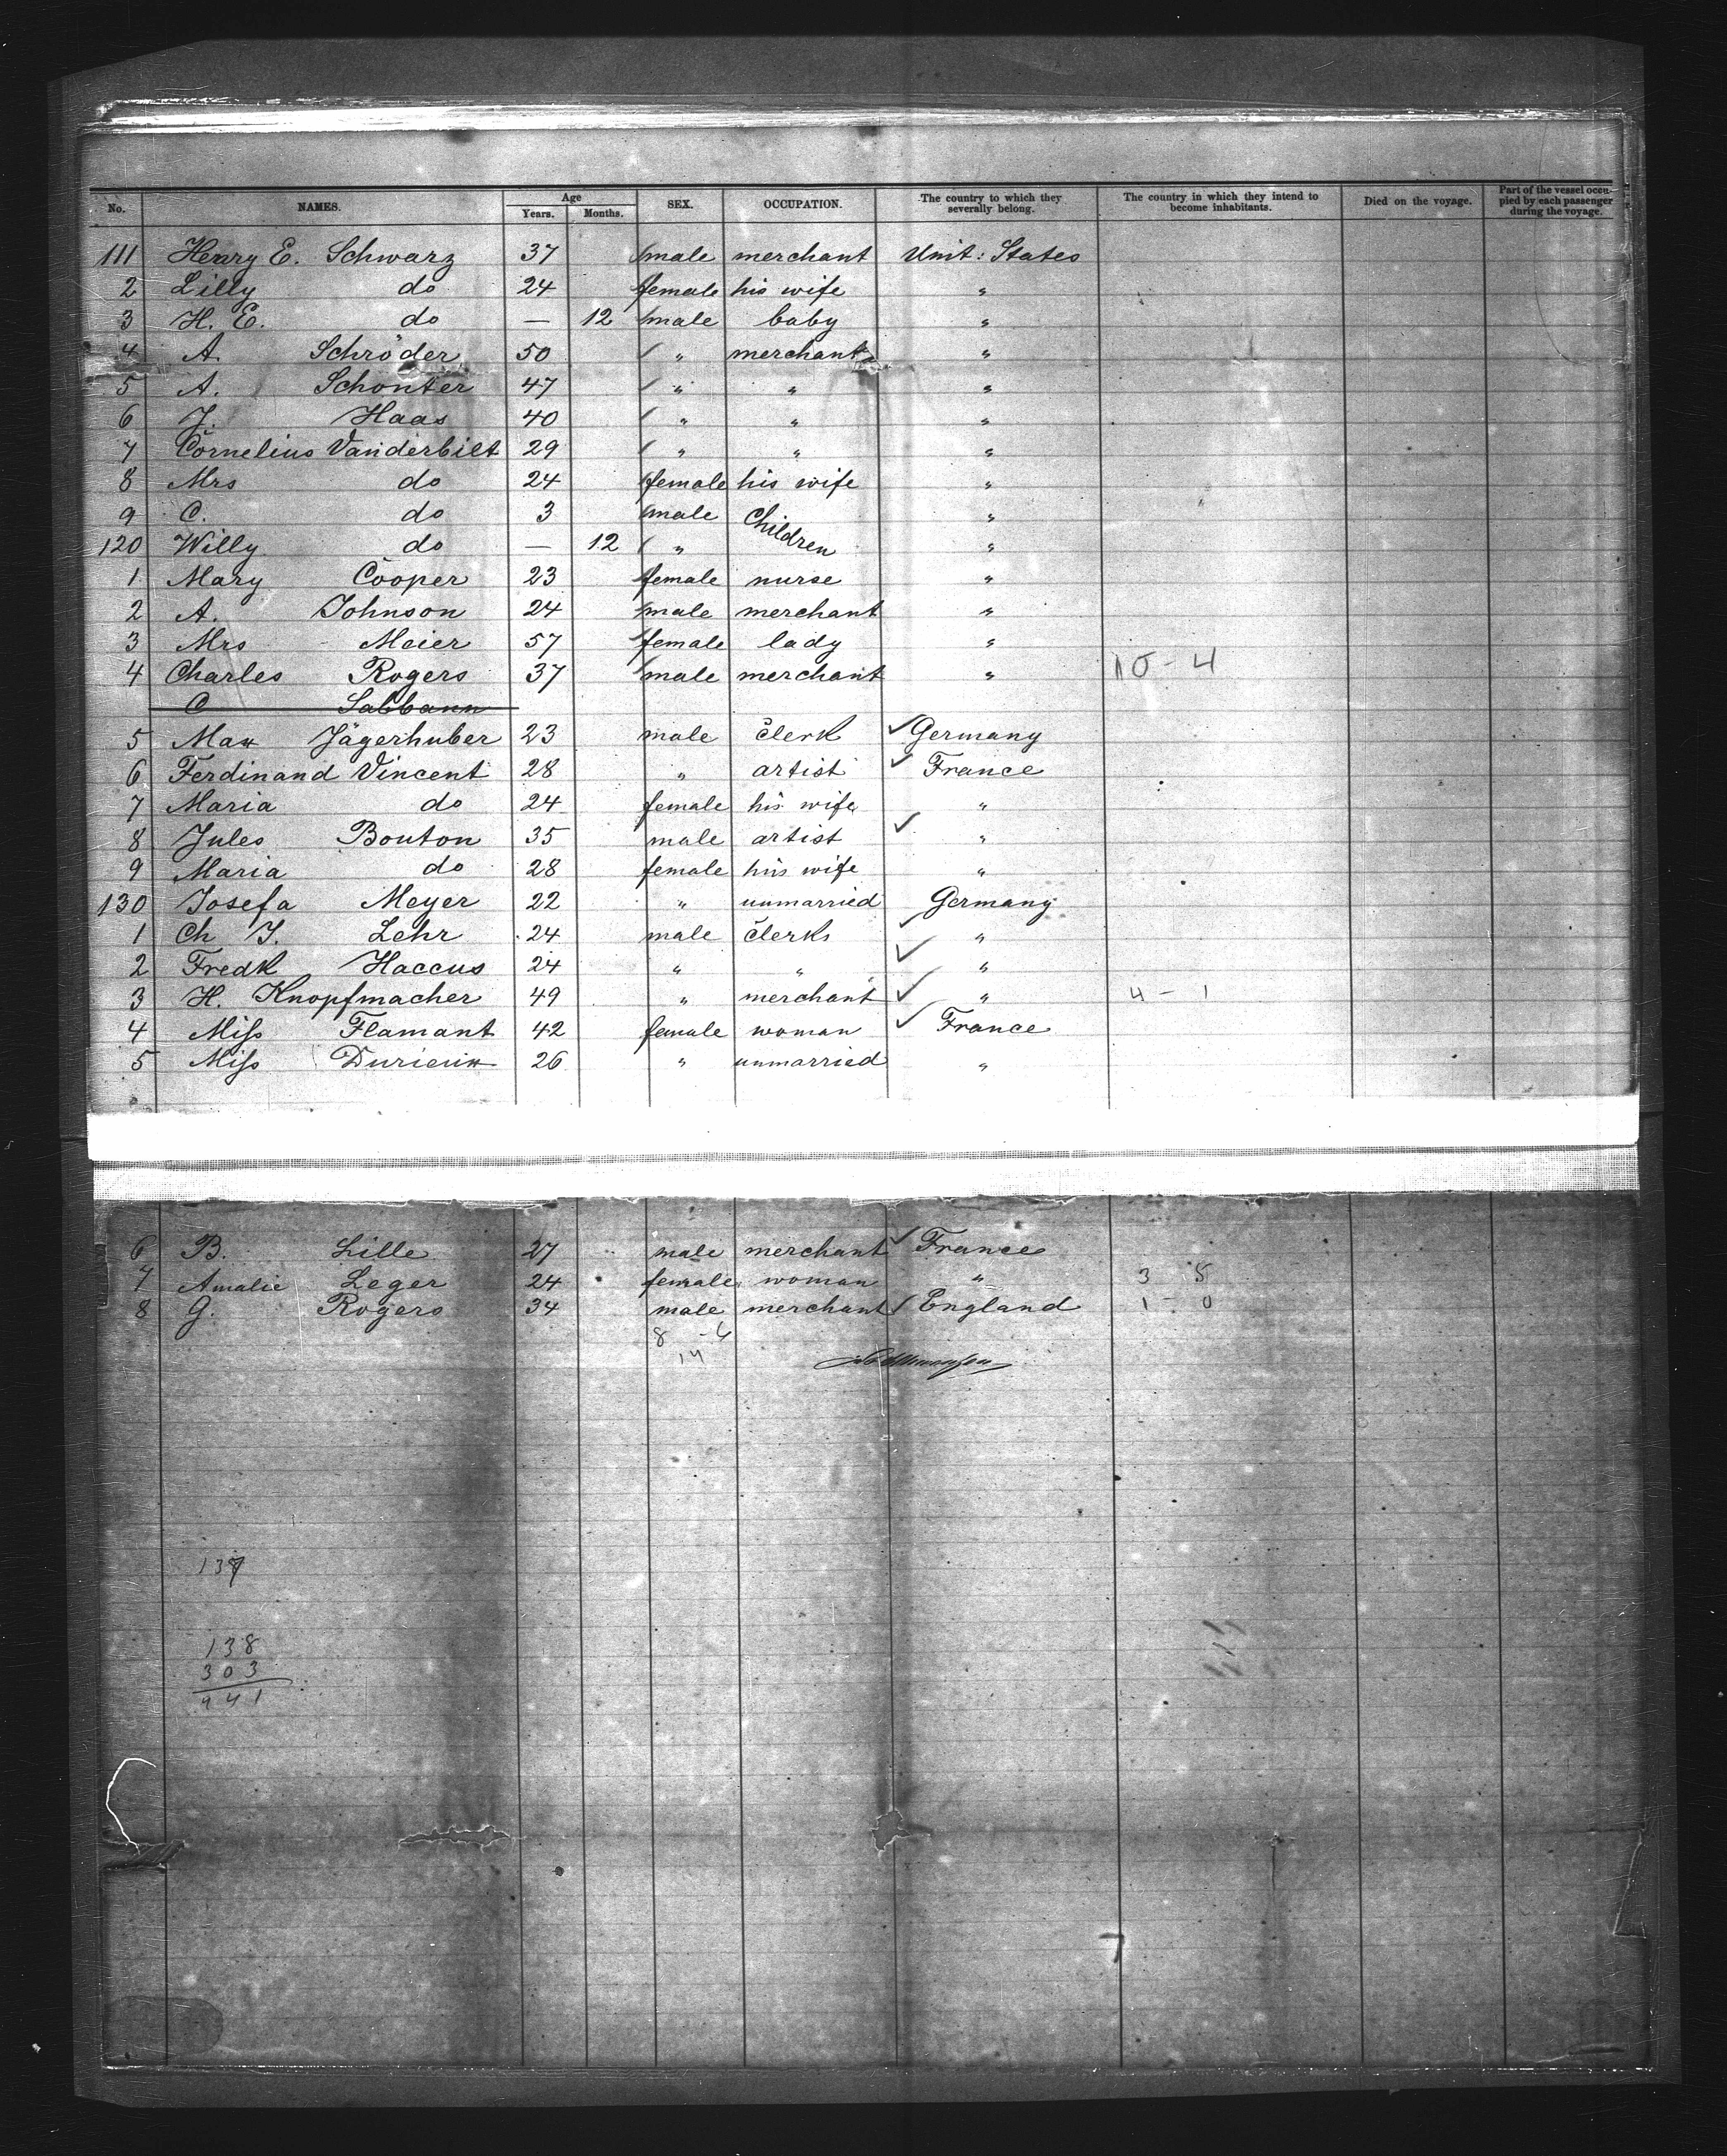 No. NAMES. Age Years. Months. SEX. OCCUPATION. The country to which they severally belong. The country in which they intend to become inhabitants. Died on the voyage. Part of the vessel occupied by each passenger during the voyage.
111 Henry E. Schwarz 37 male merchant Unit: States
2 Lilly do 24 female his wife "
3 H. E. do — 12 male baby "
4 A. Schröder 50 " merchant "
5 A. Schonter 47 " " "
6 J. Haas 40 " " "
7 Cornelius Vanderbilt 29 " " "
8 Mrs do 24 female his wife "
9 C. do 3 male Children "
120 Willy do — 12 " "
1 Mary Cooper 23 female nurse "
2 A. Johnson 24 male merchant "
3 Mrs Meier 57 female lady "
4 Charles Rogers 37 male merchant " 10 - 4
C Sabbann
5 Max Jägerhuber 23 male clerk Germany
6 Ferdinand Vincent 28 " artist France
7 Maria do 24 female his wife "
8 Jules Bouton 35 male artist "
9 Maria do 28 female his wife "
130 Josefa Meyer 22 " unmarried Germany
1 Ch J. Lehr 24 male clerks "
2 Fredk Haccus 24 " " "
3 H. Knopfmacher 49 " merchant " 4 - 1
4 Miss Flamant 42 female woman France
5 Miss Durieux 26 " unmarried "
6 B. Lille 27 male merchant France
7 Amalie Leger 24 female woman " 3 5
8 G. Rogers 34 male merchant England 1 - 0
8 - 6
14
137
138
303
441
7